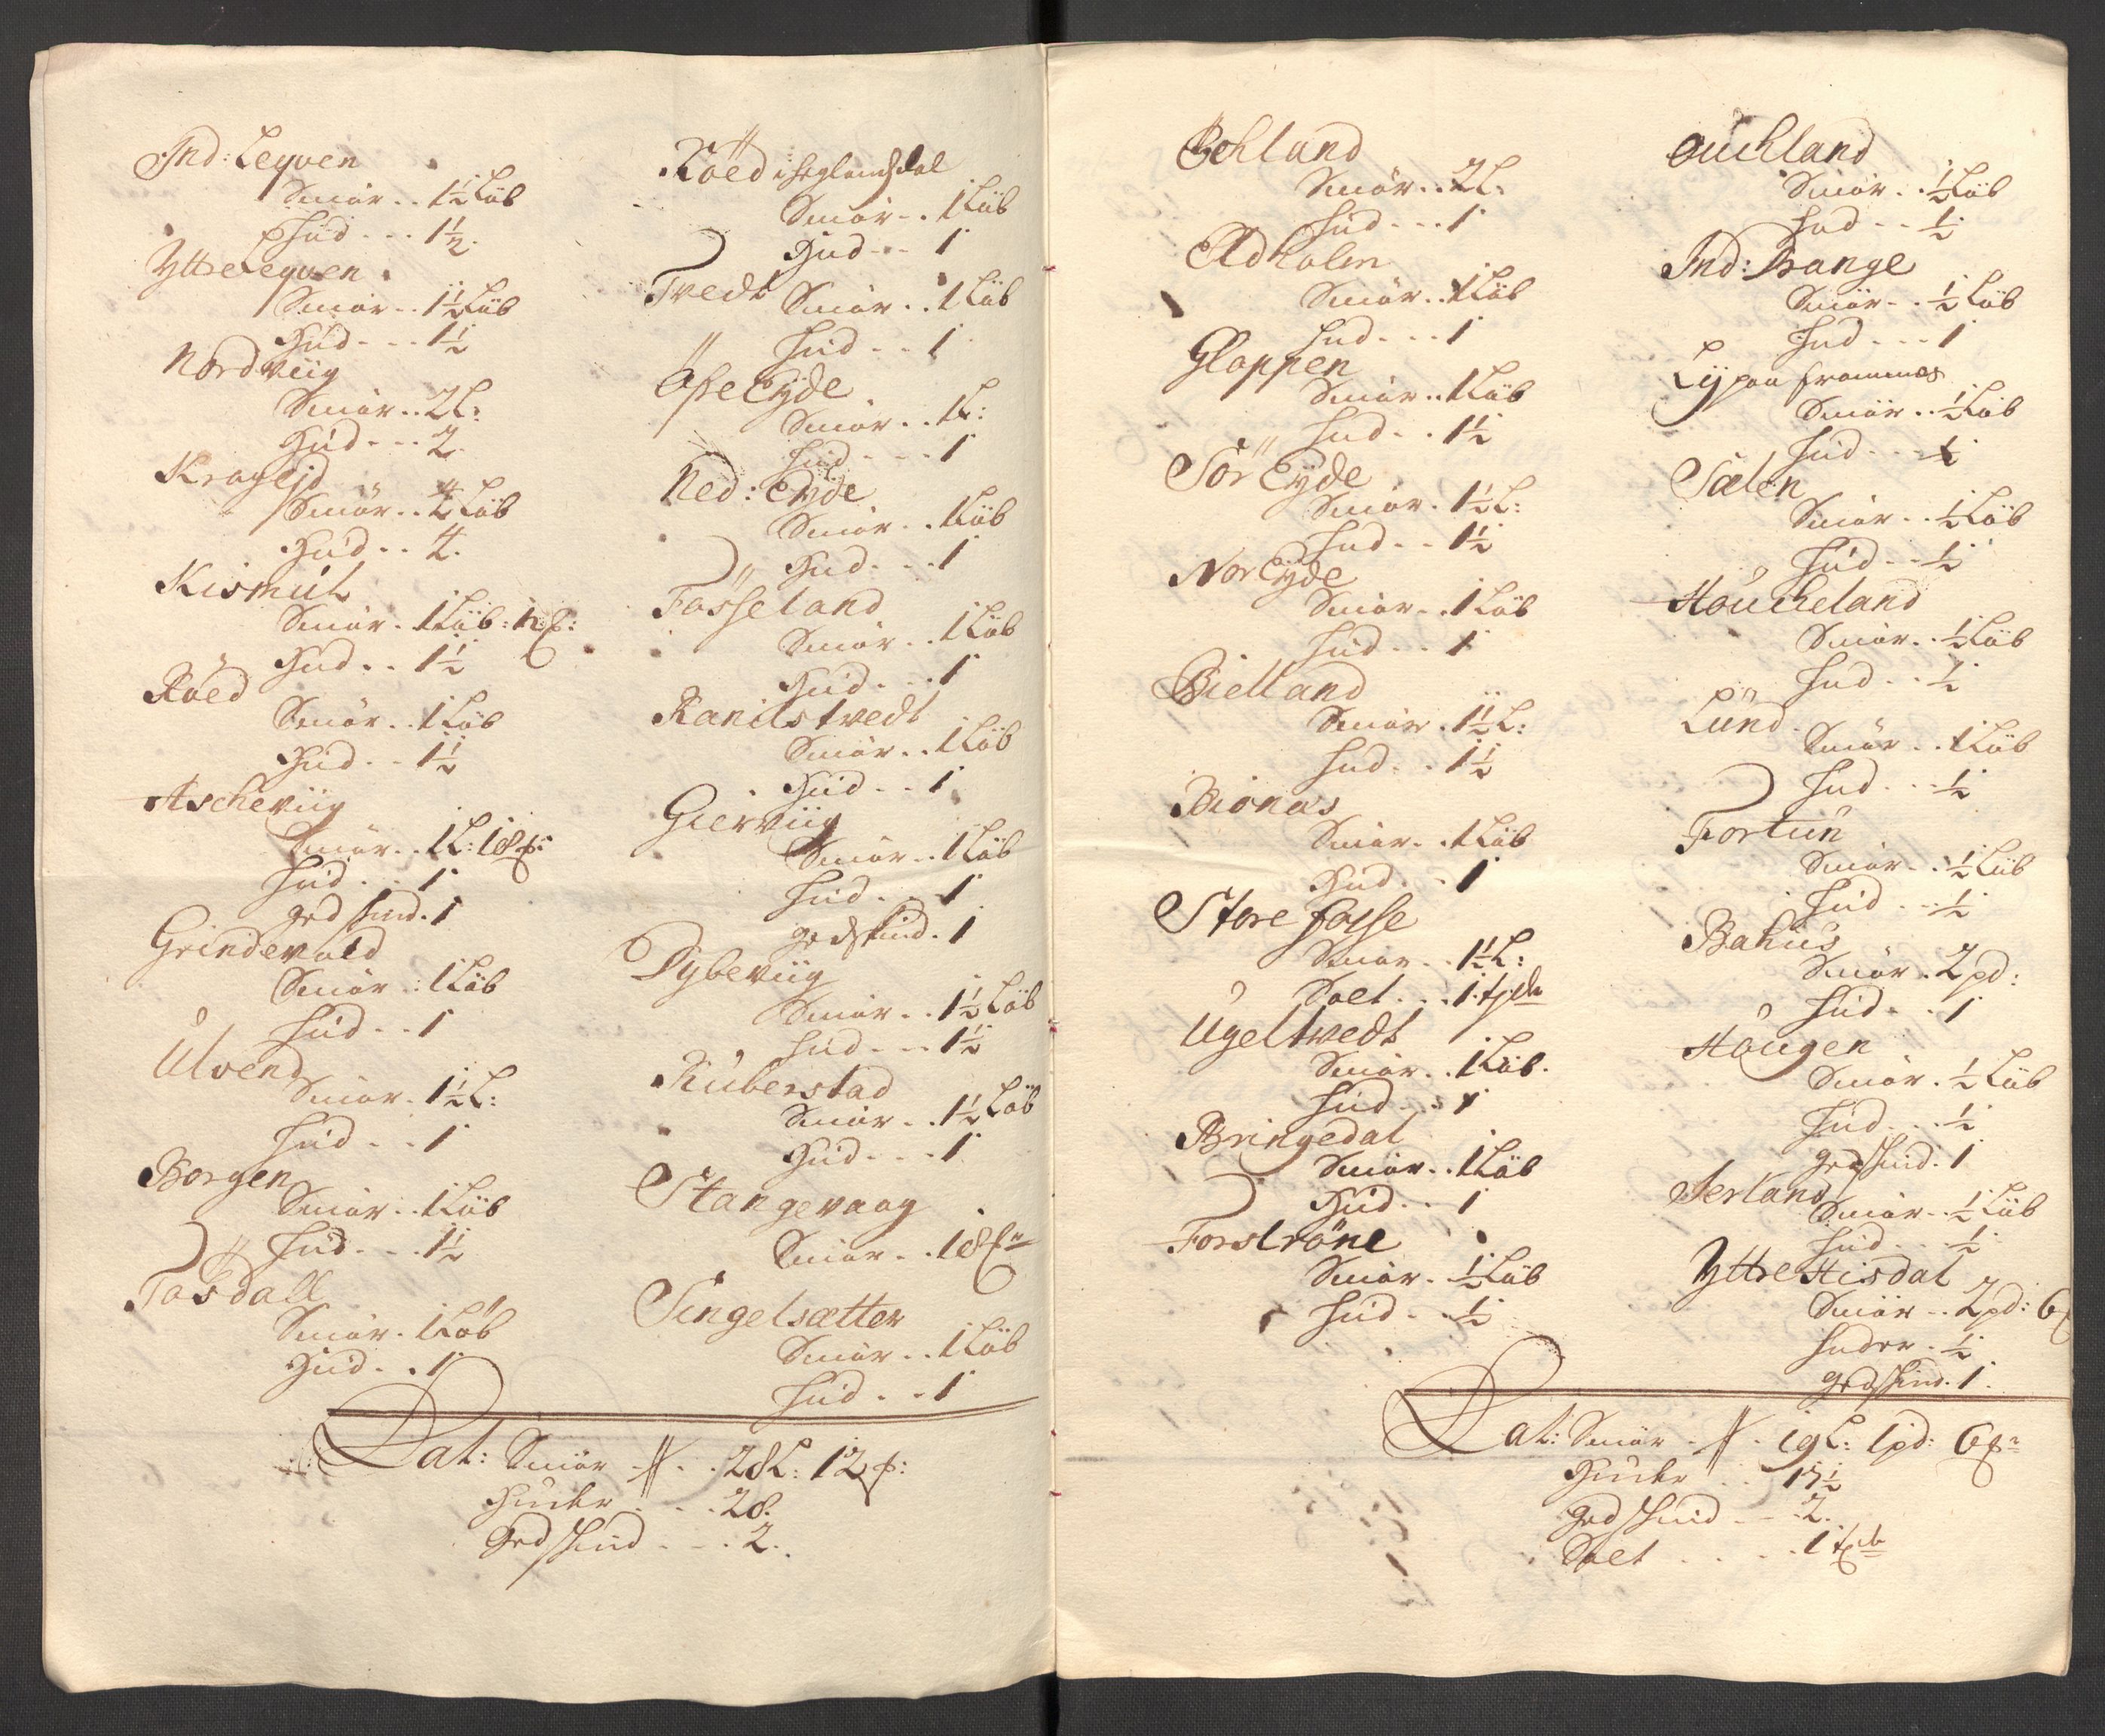 Ind: Legven
Smör .. 1½ Löb
Hud - - - 1½
Yttrelegven
Smör .. 1½ Löb
Hud - - - 1½
Nordviig
Smör .. 2 L:
Hud - - - 2.
Kragejd
Smör .. Löb
Hud .. 4.
Kismul
Smör . 1 Löb: 12 :
Hud .. 1½
Röed
Smör .. 1 Löb
Hud .. 1½
Ascheviig
Smör .. 1 L: 18
Hud .. 1
ged skind . 1
Grindevold
Smör . 1 Löb
Hud .. 1
Ulvend
Smör . 1½ L:
Hud .. 1
Borgen
Smör .. 1 Löb
Hud .. 1½
Tosdall
Smör . 1 Löb
Hud .. 1
Röed i
Smör .. 1 Löb
Hud .. 1
Tvedt
Smör .. 1 Löb
Hud .. 1
Öfre Eyde
Smör .. 1 L:
Hud - - - 1
Ned: Eyde
Smör .. 1 Löb
Hud - - - 1
Fosseland
Smör .. 1 Löb
Hud - - - 1
Ranilstvedt
Smör .. 1 Löb
Hud .. 1
Gierviig
Smör .. 1 Löb
Hud .. 1
gedskind . 1
Dybeviig
Smör .. 1½ Löb
Hud - - - 1½
Kuberstad
Smör .. 1½ Löb
Hud - - - 1
Stangevaag
Smör .. 18
Singelsætter
Smör .. 1 Löb
Hud .. 1
Lat: Smör - - - 28 L: 12
Huder - - - 28.
ged skind - - - 2.
Smör .. 2 L:
Hud - - - 1
Adholm
Smör .. 1 Löb
Hud - - - 1
Gloppen
Smör .. 1 Löb
Hud .. 1½
Sör Eyde
Smör . 1½ L:
Hud .. 1½
Nor Eyde
Smör .. 1 Löb
Hud .. 1
Bielland
Smör . 1½ L:
Hud .. 1½
Bionas
Smör .. 1 Löb
Hud .. 1
Store fosse
Smör .. 1½ L:
Salt . . . 1
Ugeltvedt
Smör .. 1 Löb.
Hud .. 1
Bringedal
Smör .. 1 Löb
Hud .. 1
Forströne
Smör . ½ Löb
Hud .. ½
ouchland
Smör .. ½ Löb
Hud .. ½
Ind: Drange
Smör .. ½ Löb
Hud - - - 1
Smör .. ½ Löb
Hud
Sælen
Smör .. ½ Löb
Hud .. ½
Houcheland
Smör .. ½ Löb
Hud .. ½
Lund
Smör .. 1 Löb
Hud .. ½
Fortun
Smör .. ½ Löb
Hud .. ½
Bakus
Smör . 2 pd:
Hud .. 1
Hougen
Smör . ½ Löb
Hud .. ½
gedskind . 1
Serland
Smör .. ½ Löb
Hud .. ½
Yttre Hisdal
Smör .. 2 pd: 6
Huder . ½
gedskind . 1
Lat: Smör - - - 19 L: 1 pd: 6
Huder .. 17½
ged skind - - 2.
Salt . . . . 1